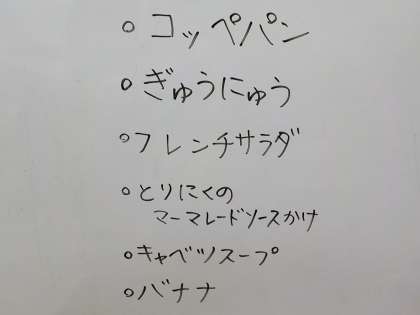 ○ コッペパン
○ ぎゅうにゅう
○ フレンチサラダ
○ とりにくの
マーマレードソースかけ
○ キャベツスープ
○ バナナ